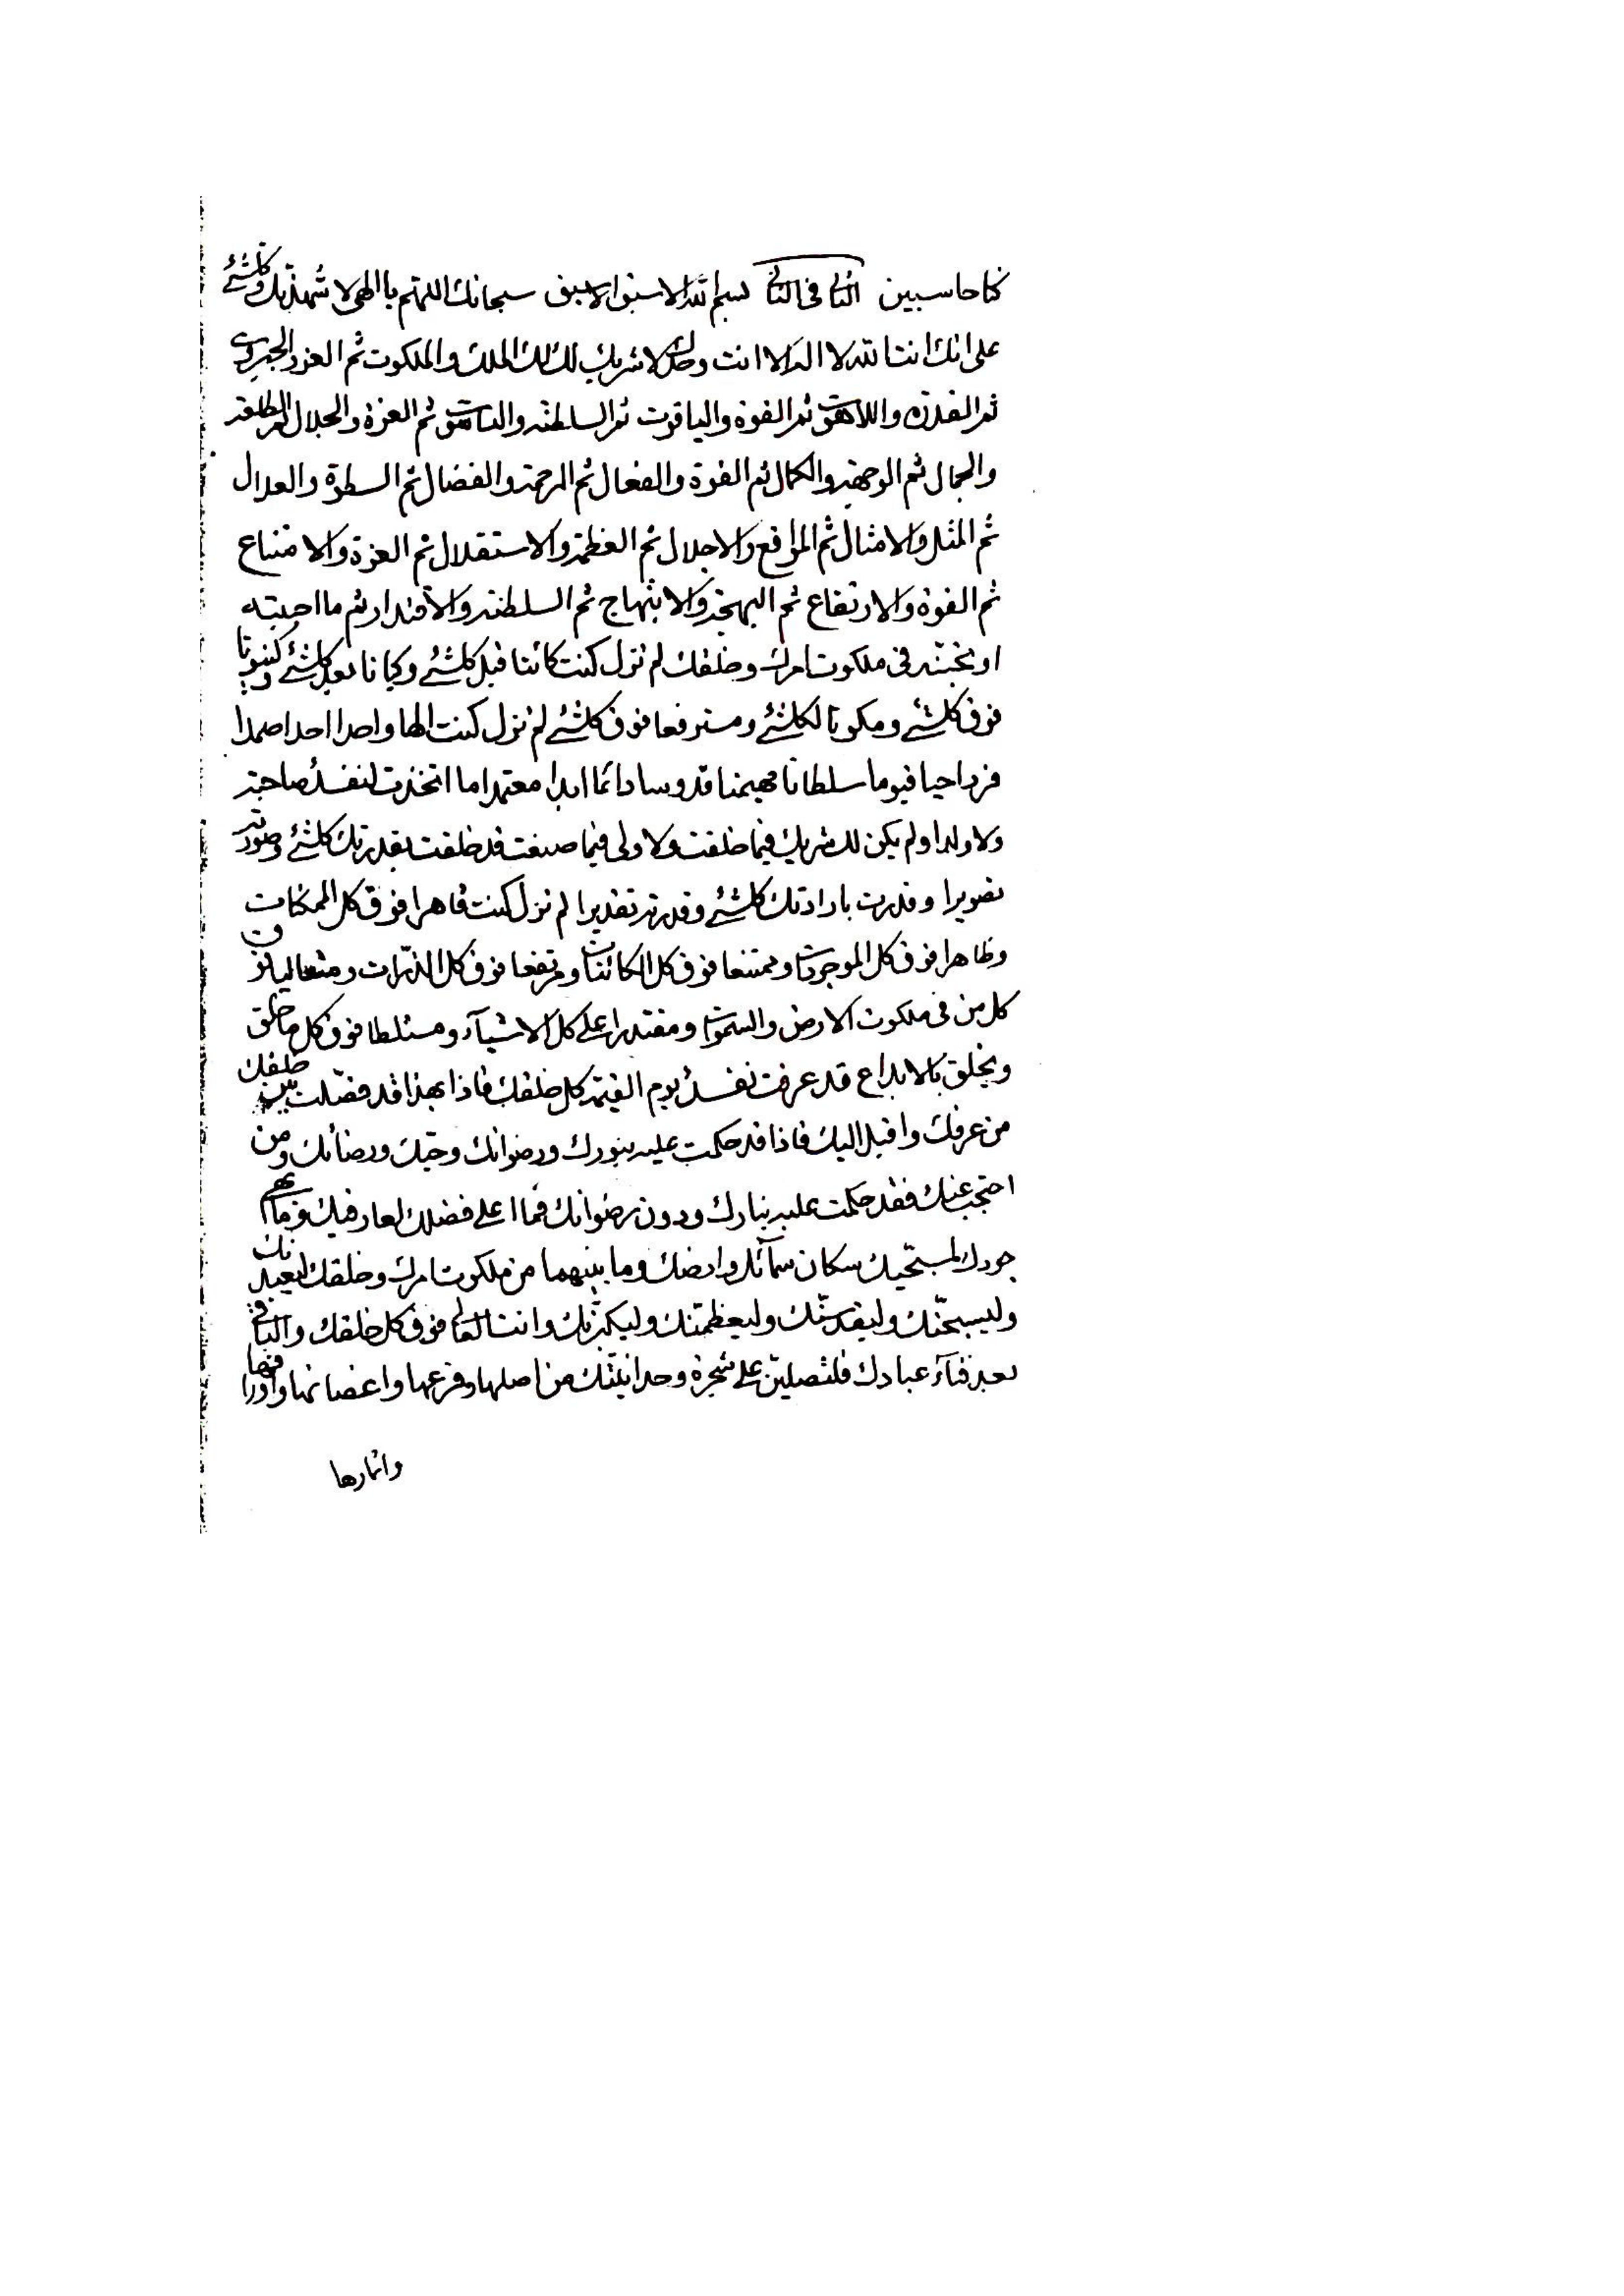 كنا حاسبين الثانى فى الثانى بسم الله الاسبق الاسبق سبحانك اللهم يا الهى لاشهدنك وكلشئ
على انك انت الله لا اله الا انت وحدك لا شريك لك لك الملك والملكوت ثم العز والجبروت
ثم القدرة واللاهوت ثم القوة والياقوت ثم السلطنة والناسوت ثم العزة والجلال ثم الطلعة
والجمال ثم الوجهة والكمال ثم القوة والفعال ثم الرحمة والفضال ثم السطوة والعدال
ثم المثل والامثال ثم المواقع والاجلال ثم العظمة والاستقلال ثم العزة والامتناع
ثم القوة والارتفاع ثم البهجة والابتهاج ثم السلطنة والاقتدار ثم ما احببته
او تحبنه فى ملكوت امرك وخلقك لم تزل كنت كائنا قبل كلشئ وكيانا بعد كلشئ وكينونا
فوق كلشئ ومكونا لكلشئ ومسترفعا فوق كلشئ لم تزل كنت الها واحدا احدا صمدا
فردا حيا قيوما سلطانا مهيمنا قدوسا دائما ابدا معتمدا ما اتخذت لنفسك صاحبة
ولا ولدا ولم يكن لك شريك فيما خلقت ولا ولى فيما صنعت قد خلقت بقدرتك كلشئ وصورته
تصويرا وقدرت بارادتك كلشئ وقدرته تقديرا لم تزل كنت قاهرا فوق كل الممكنات
وظاهرا فوق كل الموجودات وممتنعا فوق كل الكائنات ومرتفعا فوق كل الذرات ومتعاليا فوق
كل من فى ملكوت الارض والسموات ومقتدرا على كل الاشياء ومسلطا فوق كل ما خلق
ويخلق بالابداع قد عرفت نفسك يوم القيمة كل خلقك فاذا بهذا قد فصلت بين خلقك
من عرفك واقبل اليك فاذا قد حكمت عليه بنورك ورضوانك وحبك ورضائك ومن
احتجب عنك فقد حكمت عليه بنارك ودون رضوانك فما اعلى فضلك لعارفيك وما ابهى
جودك لمسبحيك سكان سمائك وارضك وما بينهما من ملكوت امرك وخلقك ليعبدنك
وليسبحنك وليقدسنك وليعظمنك وليكبرنك وانت العالى فوق كل خلقك والباقى
بعد فناء عبادك فلتصلين على شجرة وحدانيتك من اصلها وفرعها واغصانها واوراقها
واثمارها